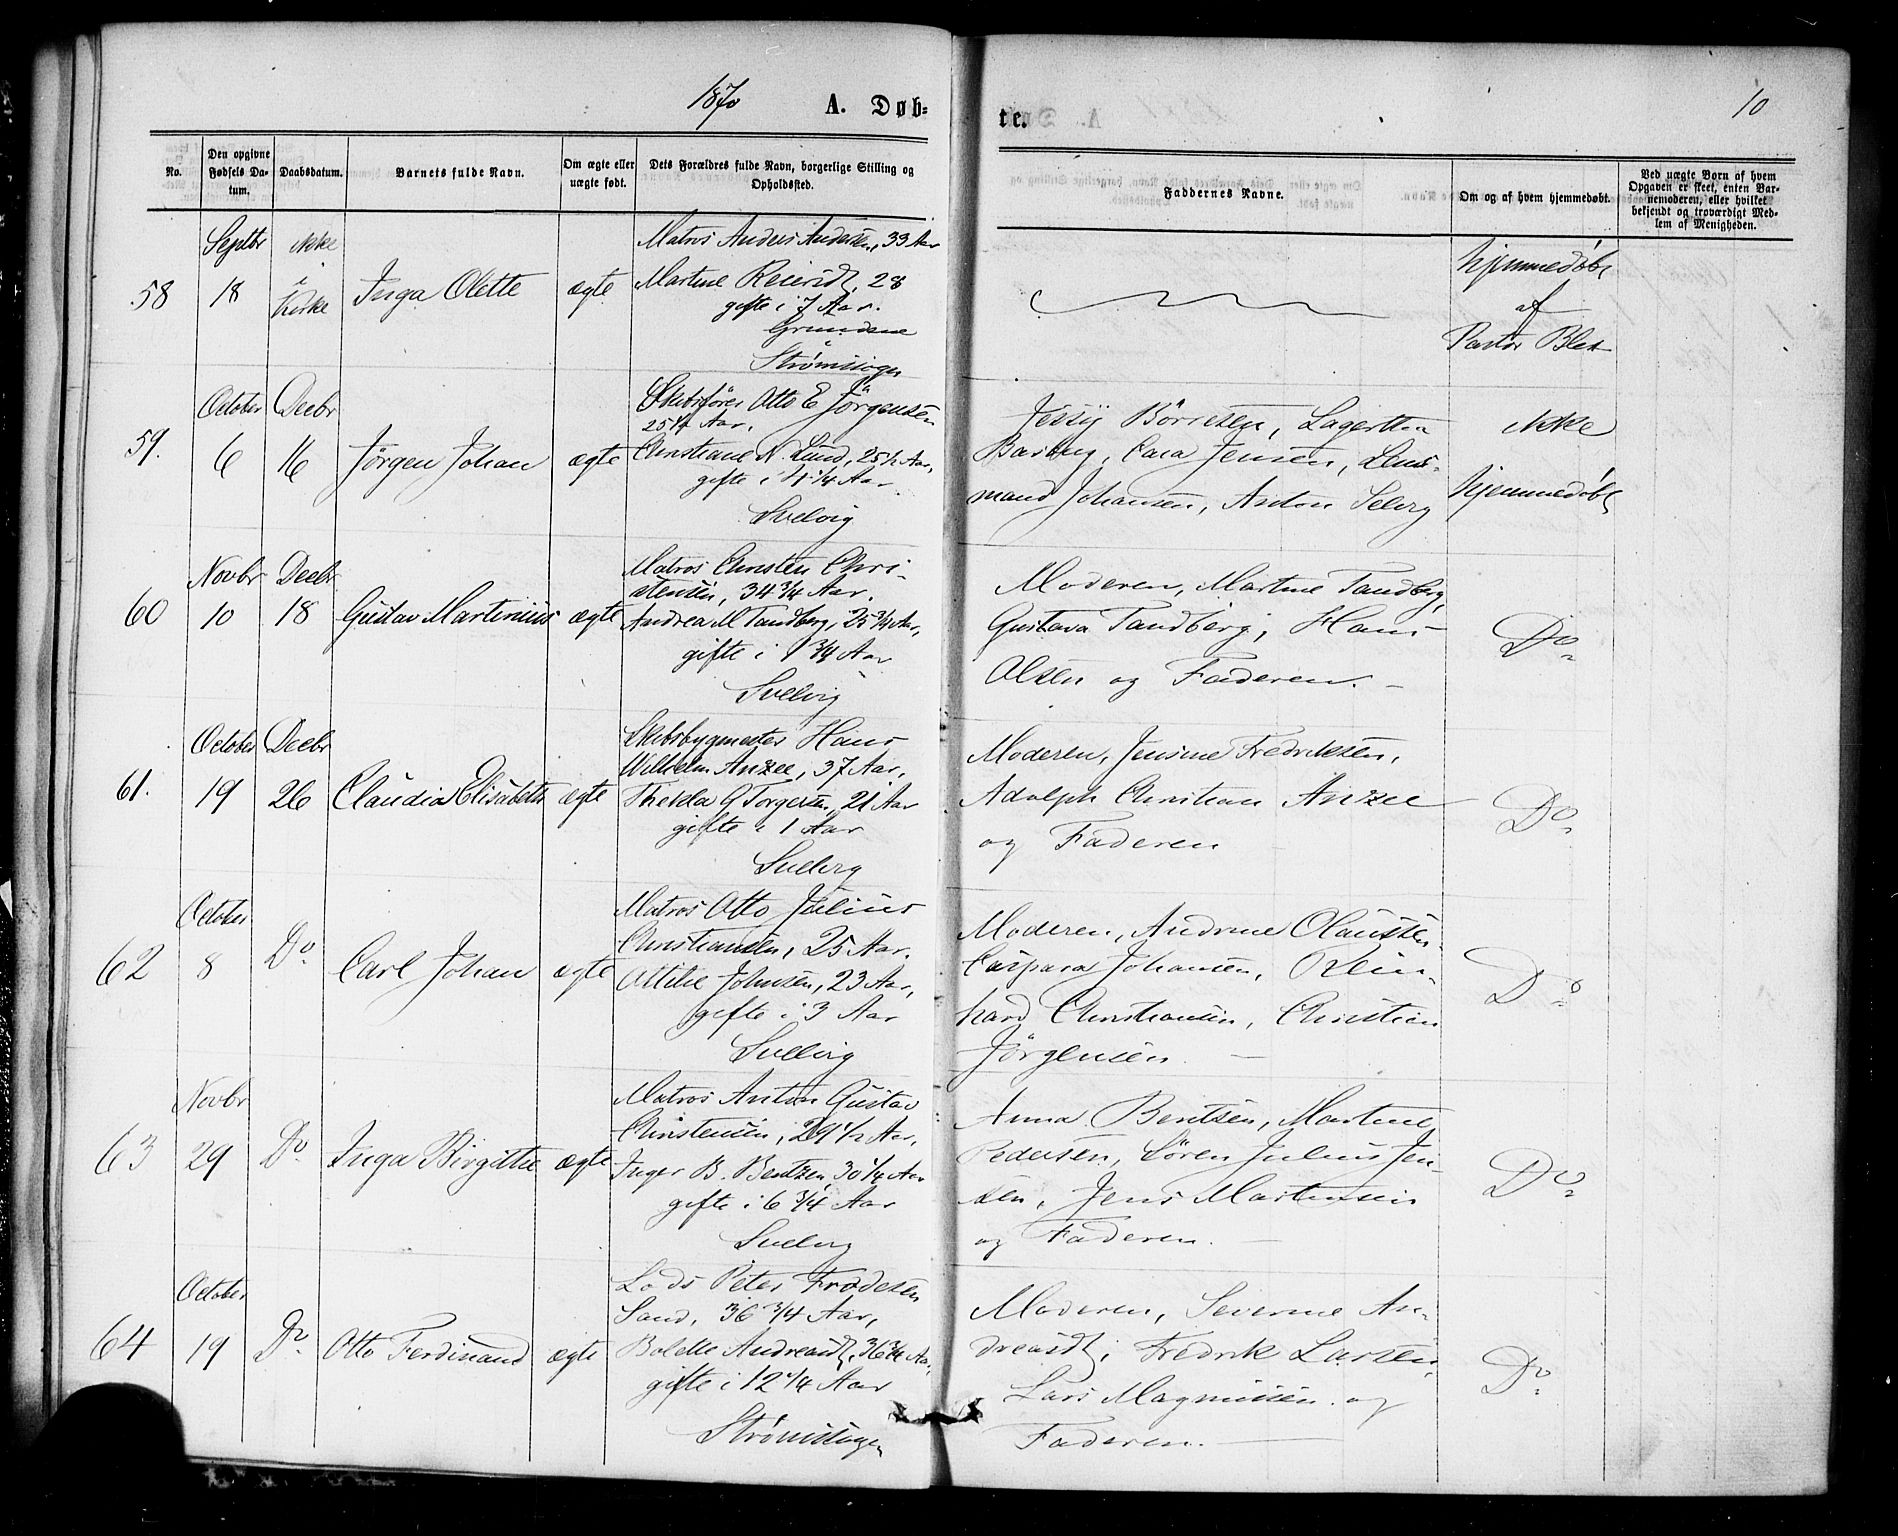 1870
A. Døb-
te.
10
No.
Den opgivne
Fødsels Da-
tum.
Daabsdatum.
Barnets fulde Navn.
Om ægte eller
uægte født.
Dets Forældres fulde Navn, borgerlige Stilling og
Opholdssted.
Faddernes Navne.
Om og af hvem hjemmedøbt.
Ved uægte Børn af hvem
Opgaven er skeet, enten Bar-
nemoderen, eller hvilket
bekjendt og troværdigt Med-
lem af Menigheden.
58
Septbr
18
ikke
i
Kirke
Inga Olette
ægte
Matros Anders Andersen, 33 Aar
Martine Reiersdt, 28
gifte i 7 Aar.
Grundsne
Strømssogn
Hjemmedøbt
af
Pastor
59.
October
6
Decbr
16
Jørgen Johan
ægte
Skibsfører Otto E Jörgensen
25 1/4 Aar,
Christiane N. Lund, 25 1/2 Aar,
gifte i 1 1/4 Aar
Svelvig
Jessy Börresen, Lagertha
Barbey, Cara Jensen, Lens-
mand Johansen, Anton Selvig
ikke
hjemmedøbt
60
Novbr
10
Decbr
18
Gustav Martinius
ægte
Matros Christen Chri-
stensen, 34 3/4 Aar.
Andrea M Tandberg, 25 3/4 Aar,
gifte i 1 3/4 Aar
Svelvig
Moderen, Martine Tandberg,
Gustava Tandberg, Hans
Olsen og Faderen. -
Do
61.
October
19
Decbr
26
Claudia Elisabeth
ægte
Skibsbygmester Hans
Wilhelm Anzee, 37 Aar,
Thekla G Torgersen, 21 Aar
gifte i 1 Aar
Svelvig
Moderen, Jensine Fredriksen,
Adolph Christian Anzee
og Faderen
Do
62
October
8
Do
Carl Johan
ægte
Matros Otto Julius
Christiansen, 25 Aar.
Attilie Johnsen, 23 Aar,
gifte i 3 Aar
Svelvig
Moderen, Andrine Claussen,
Caspara Johansen,
hard Christiansen, Christian
Jörgensen. -
Do
63
Novbr
29
Do
Inga Birgitte
ægte
Matros Anton Gustav
Christensen, 29 1/2 Aar,
Inger B. Bentzen, 30 1/4 Aar
gifte i 6 3/4 Aar
Svelvig
Anna Bentsen, Martine
Pedersen, Sören Julius Jen-
sen, Jens Martinsen
og Faderen. -
Do
64
October
19
Do
Otto Ferdinand
ægte
Lods Peter Frodesen
Sand, 36 3/4 Aar,
Bolette Andreasdt, 36 3/4 Aar,
gifte i 12 1/4 Aar
Strømssogn
Moderen, Severine An-
dreasdt, Fredrik Larsen,
Lars Magnusen og
Faderen. -
Do